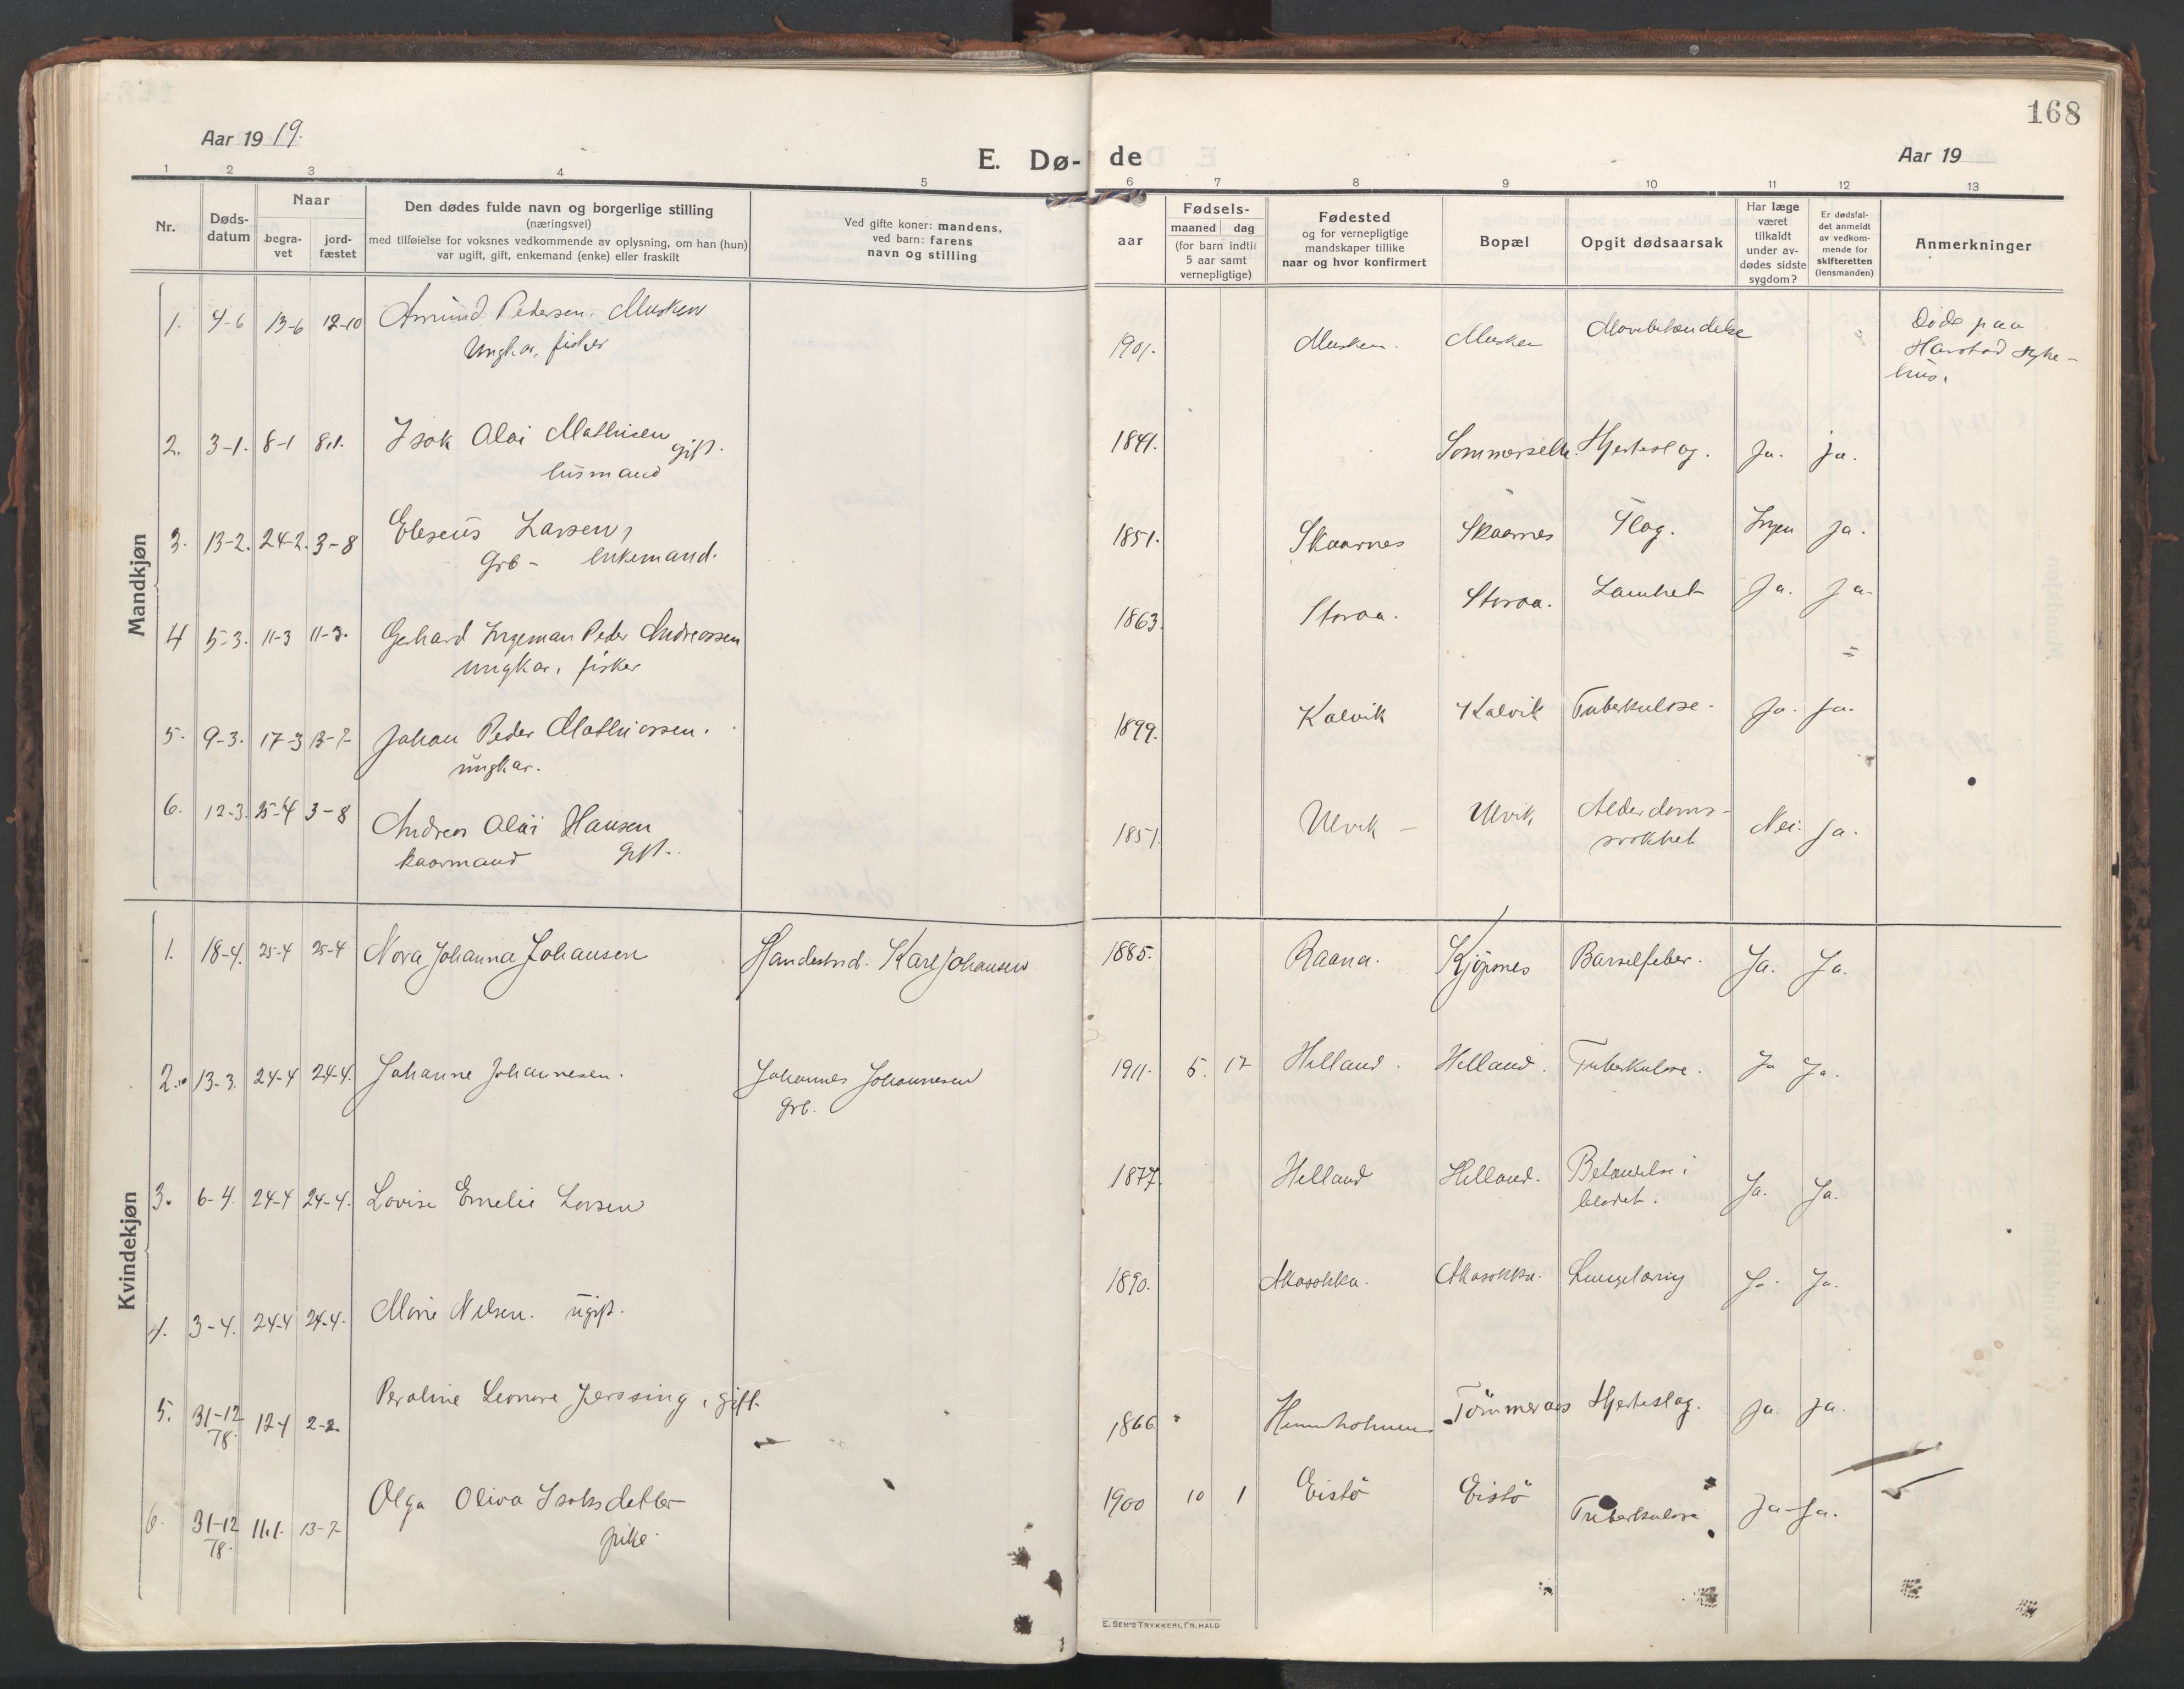 168
Aar 1919.
E. Dø-
de
Aar 19
1 2 3 4 5 6 7 8 9 10 11 12 13
Nr.
Døds-
datum
Naar
begra-
vet
jord-
fæstet
Den dødes fulde navn og borgerlige stilling
(næringsvei)
med tilføielse for voksnes vedkommende av oplysning, om han (hun)
var ugift, gift, enkemand (enke) eller fraskilt
Ved gifte koner: mandens,
ved barn: farens
navn og stilling
Fødsels-
aar
maaned dag
(for barn indtil
5 aar samt
vernepligtige)
Fødested
og for vernepligtige
mandskaper tillike
naar og hvor konfirmert
Bopæl
Opgit dødsaarsak
Har læge
været
tilkaldt
under av-
dødes sidste
sygdom?
Er dødsfal-
det anmeldt
av vedkom-
mende for
skifteretten
(lensmanden)
Anmerkninger
Mandkjøn
1. 4-6 13-6 12-10 Amund Pedersen. Musken 1901. Musken. Musken Døde paa
Ungkar, fisker Harstad syke-
hus.
2. 3-1. 8-1 8.1. Isak Olai Mathisen gift. 1841. Hjerteslag. Ja. ja.
husmand
3. 13-2. 24-2. 3-8 Eleseus Larsen, 1851. Skaarnes Skaarnes Slag. Ingen ja.
Grb - enkemand.
4 5-3. 11-3 11-3. Gerhard Ingeman Peder Andreassen 1863. Storaa. Storaa. Lamhet Ja. Ja-
ungkar, fisker
5. 9-3. 17-3 13-7 Johan Peder Mathiassen. 1899. Kalvik Kalvik Tuberkulose. Ja. Ja.
ungkar.
6. 12-3. 25-4 3-8 Andreas Olai Hansen 1851. Ulvik - Ulvik Alderdoms-
kaarmand gift. svakhet Nei. Ja.
Kvindekjøn
1. 18-4. 25-4 25-4 Nora Johanna Johansen Handelsbud. Karl Johansen 1885. Raana. Kjøpsnes Barselfeber. Ja. Ja.
2. 13-3. 24-4 24-4. Johanne Johannesen. Johannes Johannesen 1911. 5. 17 Helland. Helland. Tuberkulose. Ja Ja.
grb.
3. 6-4. 24-4 24-4. Lovise Emelie Larsen 1877. Helland Helland. Betændelse i
blodet. Ja. Ja.
4. 3-4. 24-4 24-4. Marie Nilsen. ugift. 1890. Ja. Ja.
5. 31-12 12-1 2-2 Peroline Leonore Jerssing, gift. 1866 Tømmeraas Hjerteslag. ja. ja.
18.
6. 31-12 11.1. 13-7 Olga Oliva Isaksdatter 1900 10 1 Eistø Eistø Tuberkulose Ja- Ja.
18. pike.
E. SEM'S TRYKKERI, FR.HALD